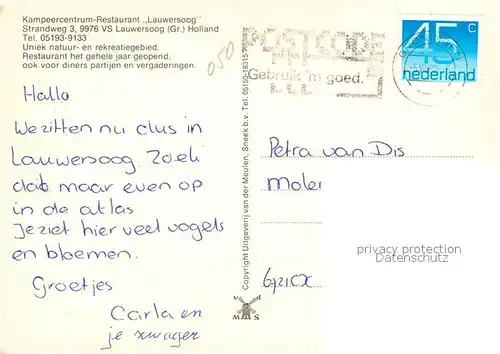 Kampeercentrum-Restaurant „Lauwersoog"
Strandweg 3, 9976 VS Lauwersoog (Gr.) Holland
Tel. 05193-9133
Uniek natuur- en rekreatiegebied.
Restaurant het gehele jaar geopend,
ook voor diners partijen en vergaderingen.
050
Hallo
We zitten nu dus in
Lauwersoog. Zoek
dat maar even op
in de atlas
Je ziet hier veel vogels
en bloemen.
Groetjes
Carla en
je zwager
Copyright Uitgeverij van der Meulen, Sneek b.v. Tel. 05150-18315
POSTCODE
Gebruik 'm goed.
45 c
nederland
Petra van Dis
Moler
privacy protection
Datenschutz